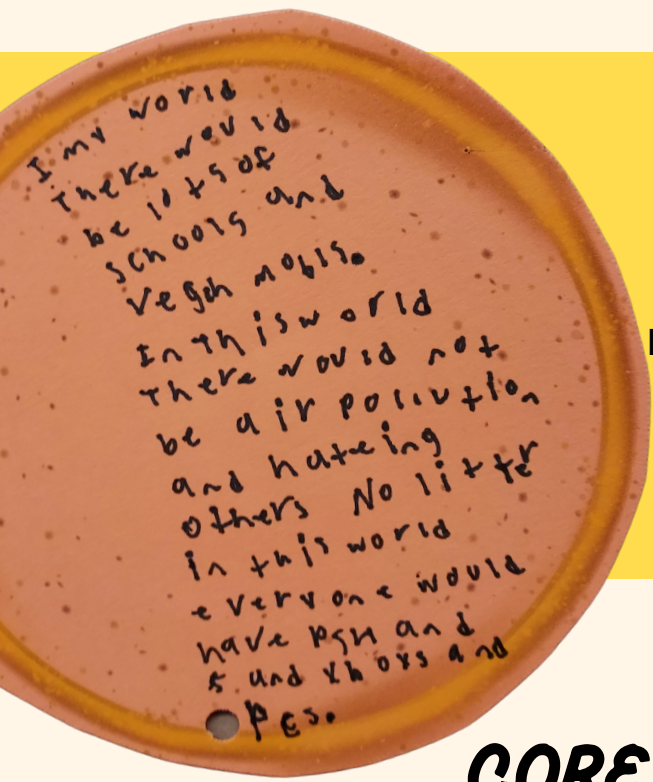 I my world
there would
be lots of
schools and
vegan mobls.
In this world
there would not
be air pollution
and hateing
others No litter
in this world
everyone would
have and
5 and xboxs and
Pcs.